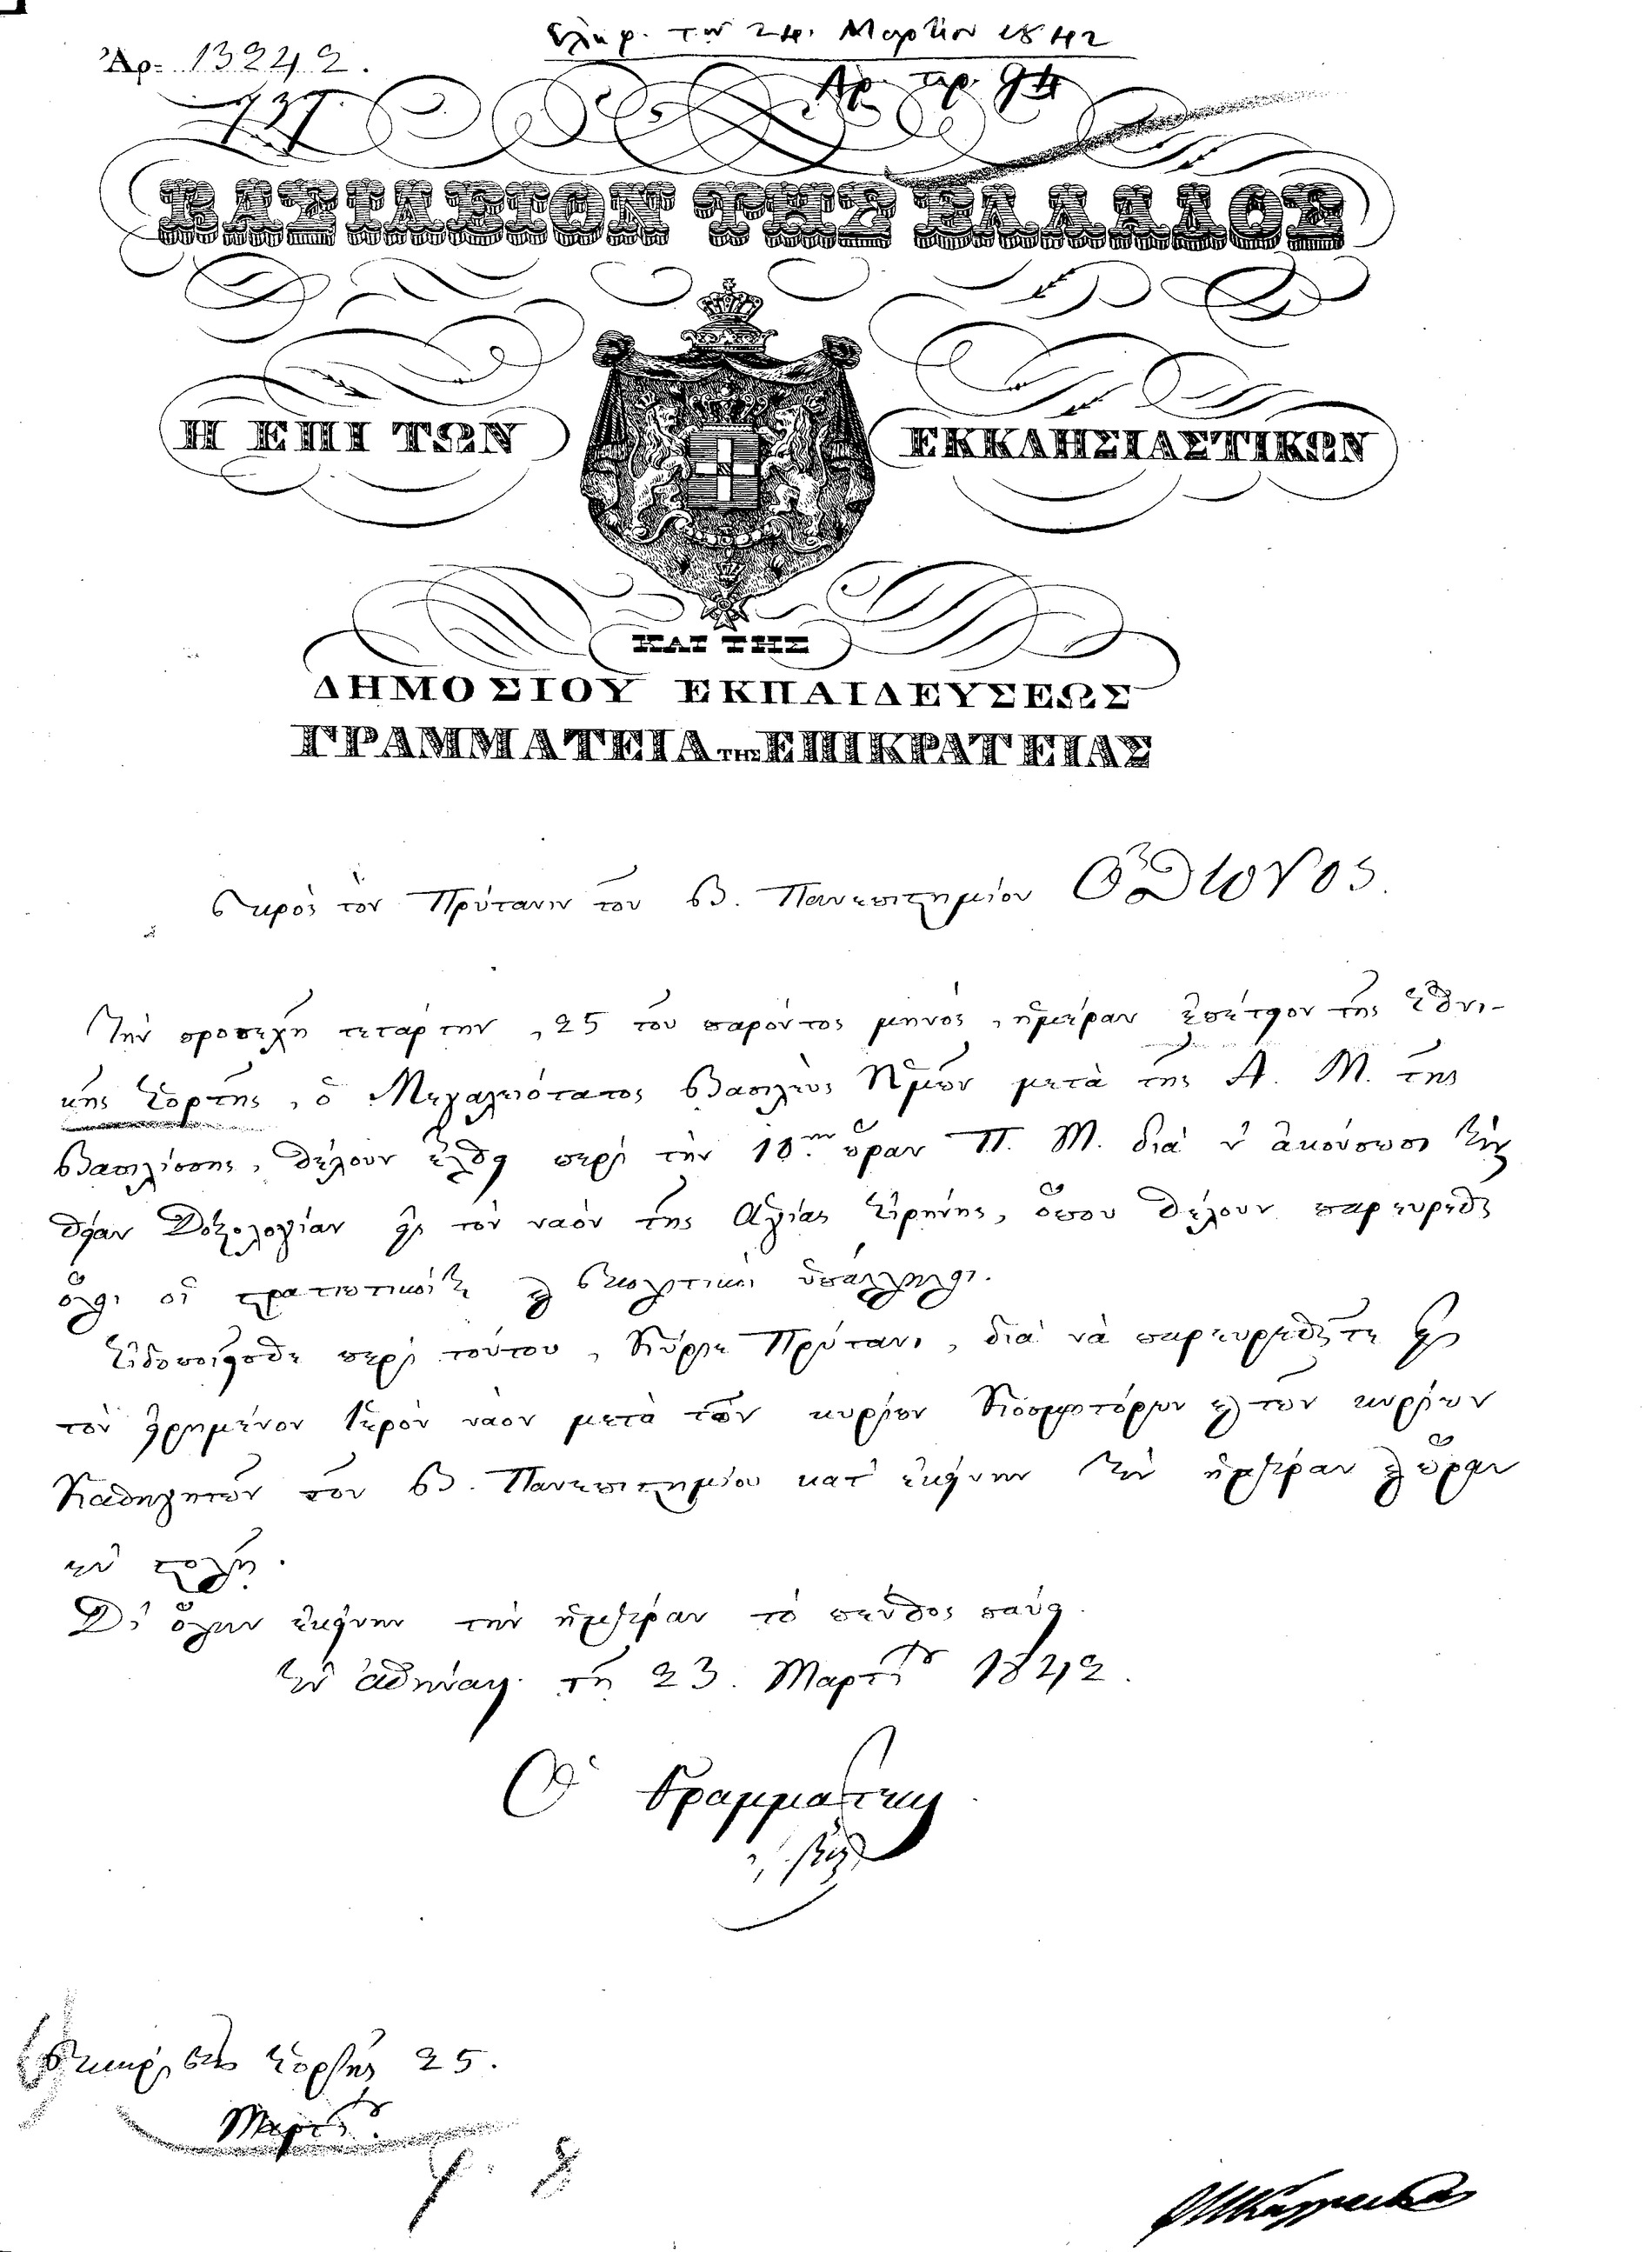 Ἀρ. 13242.
Ἐλήφ. τὴν 24. Μαρτίου 1842
Ἀρ. πρ. 94
737.
ΒΑΣΙΛΕΙΟΝ ΤΗΣ ΕΛΛΑΔΟΣ
Η ΕΠΙ ΤΩΝ ΕΚΚΛΗΣΙΑΣΤΙΚΩΝ
ΚΑΙ ΤΗΣ
ΔΗΜΟΣΙΟΥ ΕΚΠΑΙΔΕΥΣΕΩΣ
ΓΡΑΜΜΑΤΕΙΑ ΤΗΣ ΕΠΙΚΡΑΤΕΙΑΣ
Πρὸς τὸν Πρύτανιν τοῦ Β. Πανεπιστημίου Ὄθωνος.
Τὴν προσεχῆ τετάρτην, 25 τοῦ παρόντος μηνὸς, ἡμέραν ἐπέτειον τῆς Ἐθνι-
κῆς Ἑορτῆς, ὁ Μεγαλειότατος Βασιλεὺς Ἡμῶν μετὰ τῆς Α. Μ. τῆς
Βασιλίσσης, θέλουν ἐλθεῖ περὶ τὴν 10.ην ὥραν Π. Μ. διὰ ν' ἀκούσωσι τὴν
θείαν Δοξολογίαν εἰς τὸν ναὸν τῆς Ἁγίας Εἰρήνης, ὅπου θέλουν παρευρεθῆ
ὅλοι οἱ στρατιωτικοί τε καὶ πολιτικοὶ ὑπάλληλοι.
Εἰδοποιεῖσθε περὶ τούτου, Κύριε Πρύτανι, διὰ νὰ παρευρεθῆτε εἰς
τὸν εἰρημένον Ἱερὸν ναὸν μετὰ τῶν κυρίων Κοσμητόρων καὶ τῶν κυρίων
Καθηγητῶν τοῦ Β. Πανεπιστημίου κατ' ἐκείνην τὴν ἡμέραν καὶ ὥραν
ἐν στολῇ.
Δι' ὅλην ἐκείνην τὴν ἡμέραν τὸ πένθος παύει.
Ἐν Ἀθήναις τῇ 23 Μαρτίου 1842.
Ὁ Γραμματεὺς
περὶ τῆς Ἑορτῆς 25.
Μαρτίου.
φ. 8